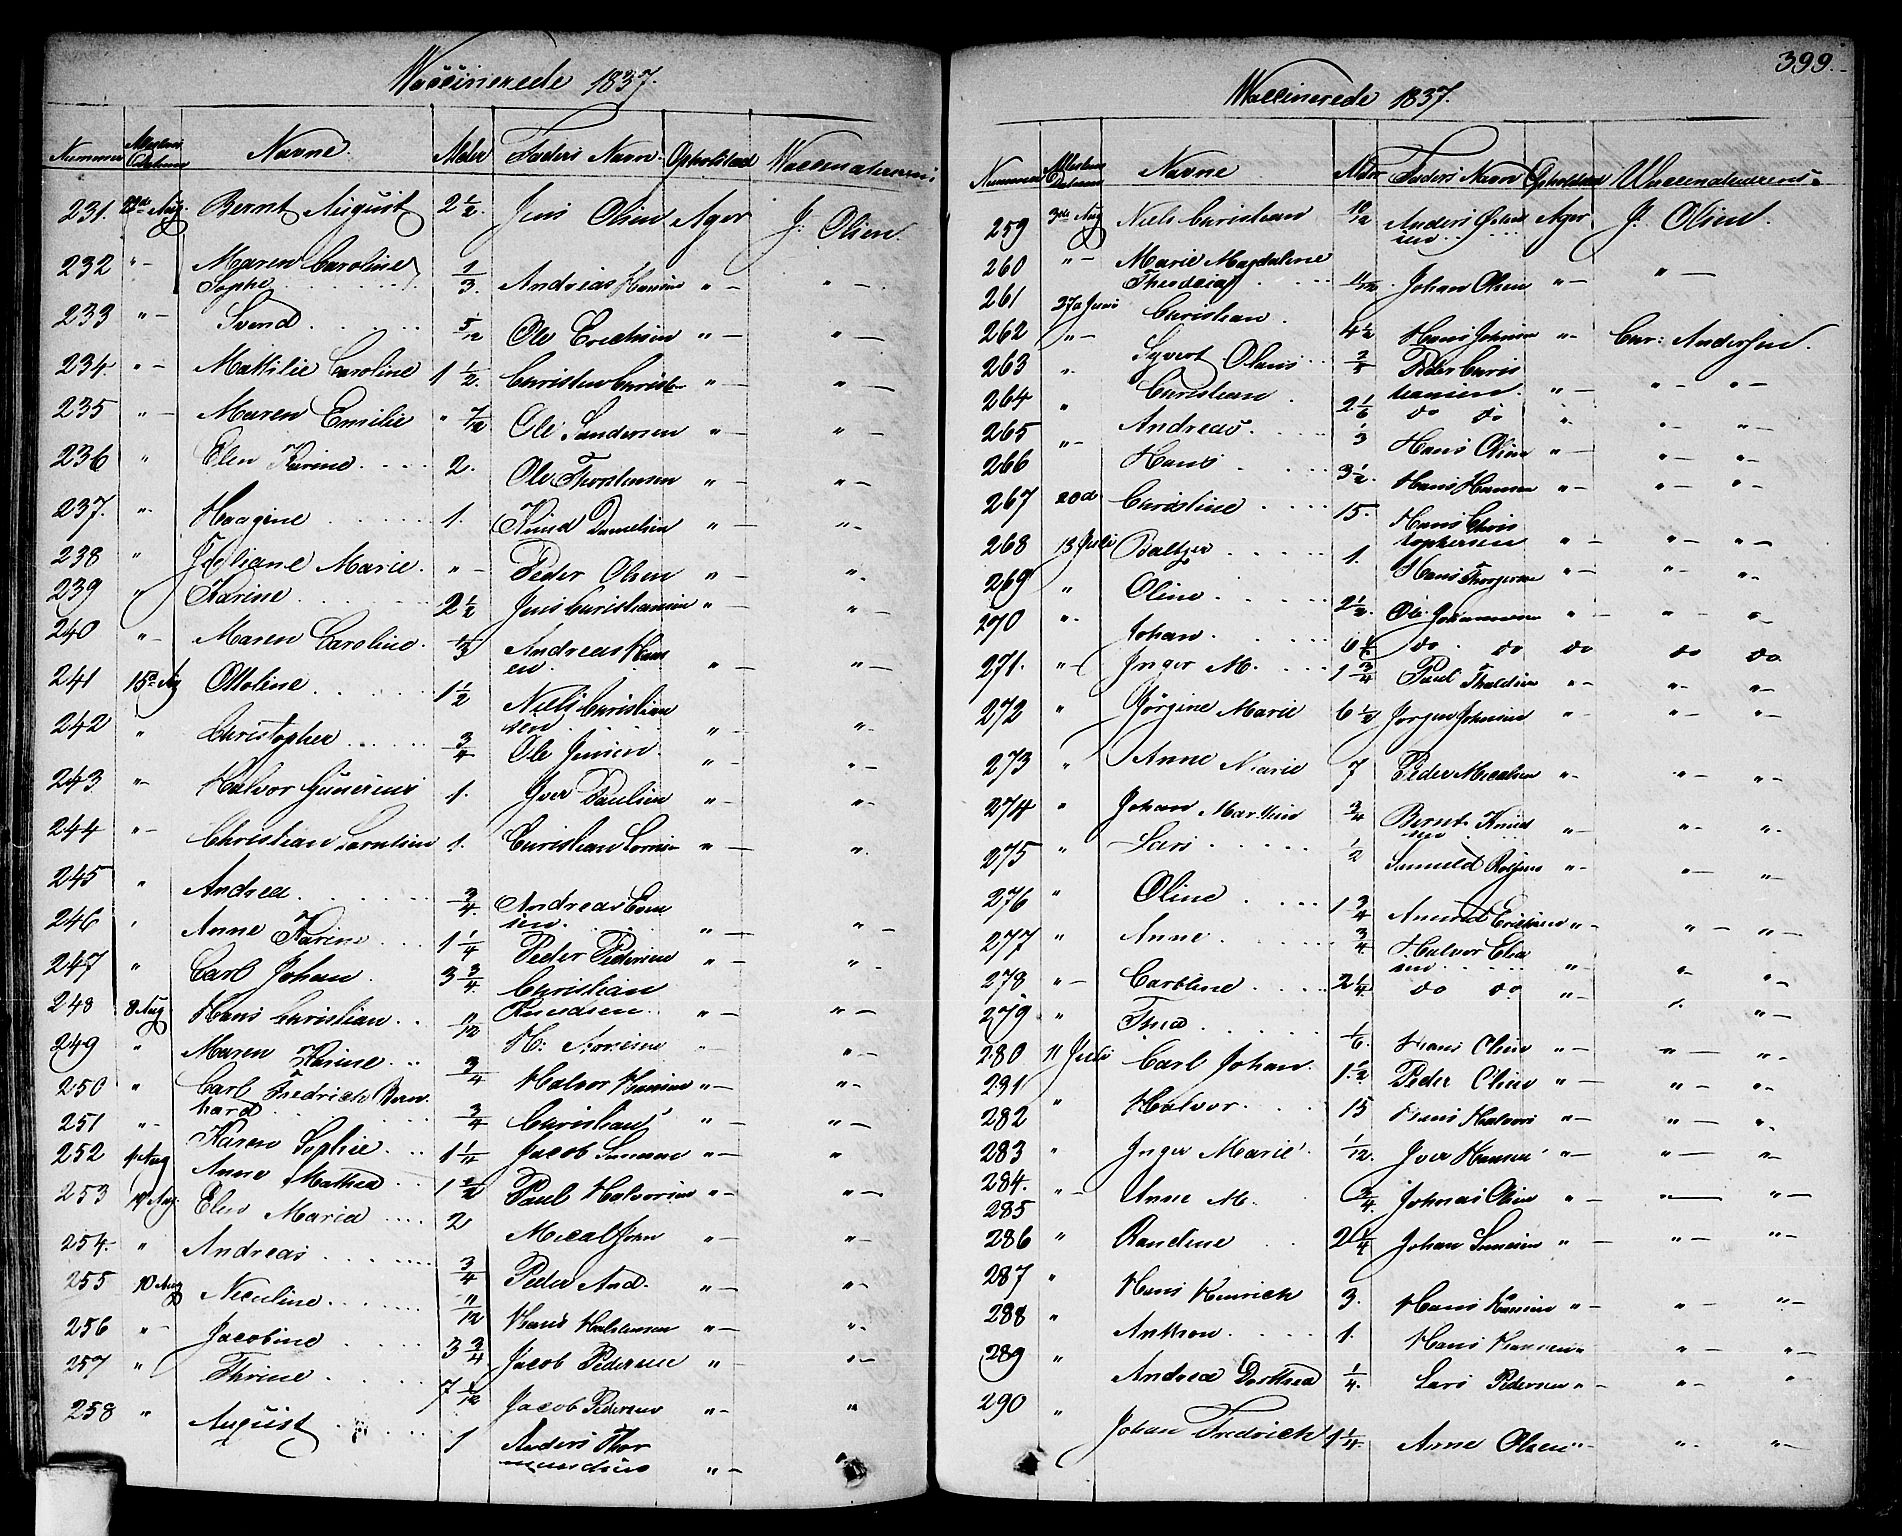 Vaccinerede 1837.
Nummer Attestens Datum Navne. Alder Faders Navn. Opholdsted Vaccinateurens
231. 22d Aug. Bernt August 2 1/2. Jens Olsen Ager J: Olsen.
232 " – Maren Caroline
Sophe. 1/3. Andreas Hansen " – " –
233 " – Svend. 5/12 Ole Erichsen " – " –
234. " – Mathilie Caroline 1 1/2. Christen Christen " – " –
235 " – Maren Emilie " 7/12 Ole Sandersen " – " –
236 " Elen Karine. 2. Ole Thorstensen " – " –
237. " Haagine 1. Knud Danielsen " – " –
238 " Juliane Marie. " – Peder Olsen " – "
239 " Karine 2 1/2 Jens Christiansen " – " –
240 " – Maren Caroline. Andreas Hans
en. " – " –
241 15d Ag Ottoline. 1 1/2 Niels Christian
sen " – " –
242 " Christopher 3/4 Ole Jensen. " – " –
243 " – Halvor Gunerius 1. Iver Paulsen " – " –
244 " – Christian Lorntsen 1. Christian Lornsen " – "
245 " Andrea. 3/4. Andreas Corn
sen. " – " –
246 " Anne Karine 1 1/4 Peder Pedersen " – " –
247 " Carl Johan. 3 3/4. Christian
Knudsen. " – " –
248 8 Aug Hans Christian. 11/12
249 " Maren Karine. 3/4 Halvor Hansen " – " –
250 " Carl Fredrich Bern
hard 3/4 Christian " – " –
251 " – Karen Sophie. 1 1/4 Jacob " – "
252 4 Aug Anne Mathea 1 1/2 Paul Halvorsen " – " –
253 10 Aug. Elen Maria 2 Micael John " – " –
254. " Andreas. 3/4 Peder And. " – " –
255 10 Aug Neculine. 11/12 Hans Halstensen " – "
256 " – Jacobine 3 3/4 Jacob Pedersen " – " –
257 " Thrine. 7 1/12 Jacob Pedersen " – "
258 " August 1 Anders Thor
mundsen " –
399.
Vaccinerede 1837.
Nummer Attestens Datum Navne Alder Faders Navn Opholdsted Vaccinateurens
259 3de Aug Niels Christian 10/12 Anders Johan
sen Ager J. Olsen.
260 " – Marie Magdalene
Theodcia 11/12. Johan Olsen " – " –
261 27d Juni Christian. 4 1/2 Hans Johnsen " – Chr: Andersen.
262 " – Syvert Olaus 2/3 Peder Chris
tiansen. " – " – " –
263 " Christian 2 1/6 do do " " – " –
264 " Andreas. 1/3 Hans Olsen " – " – " –
265 " – Hans 3 1/2. Hans Hansen " – " – " –
266 Christine 15. Hans Chris
tophersen " – " – " –
267 20d Baltzer 1. Hans Thorgersen " – " – "
268 13 Juli Oline 2 1/2. Ole Johannesen " – " – " –
269 " Johan. 6 1/2 do do do do do
270 " Inger M. 1 3/4 Paul " – " – " –
271. " – Jørgine Marie 6 1/2 Jørgen Johnsen " – " – " –
272 " Anne Marie 7 Peder Micalsen " – " – " –
273 " Johan Marthin 3/4 Bernt Knud
sen " – " – "
274 " Lars 1/2 " – " – " –
275 " Oline 1 3/4 Amund Erichsen " – " – " –
276 " Anne 3/4. Halvor Elia
sen " – " – " –
277 " Caroline. 2 1/4 do do " – " – " –
278 " – Thea 1/6. Hans Olsen " – " – " –
279 " Carl Johan. 1 1/2 Peder Olsen " – " – " –
280 11 Juli Halvor. 15 Hans Halvors " – " – "
291 " Inger Marie 1/12. Iver Hansen " – " – " –
282 Anne M. 3/4. Johnas Olsen " – " – " –
283 " Randine 2 1/4 Johan " – " – " –
284. " – Hans Heinrich 3. Hans Hansen " – " – " –
285 Anthon 1. Hans Hansen " – " – " –
286 " Andrea Dorthea 1/4. Lars Pedersen " – " – "
287 " Johan Fredrich 1 1/4. Arne Olsen " – " – " –
288 "
289 "
290 "